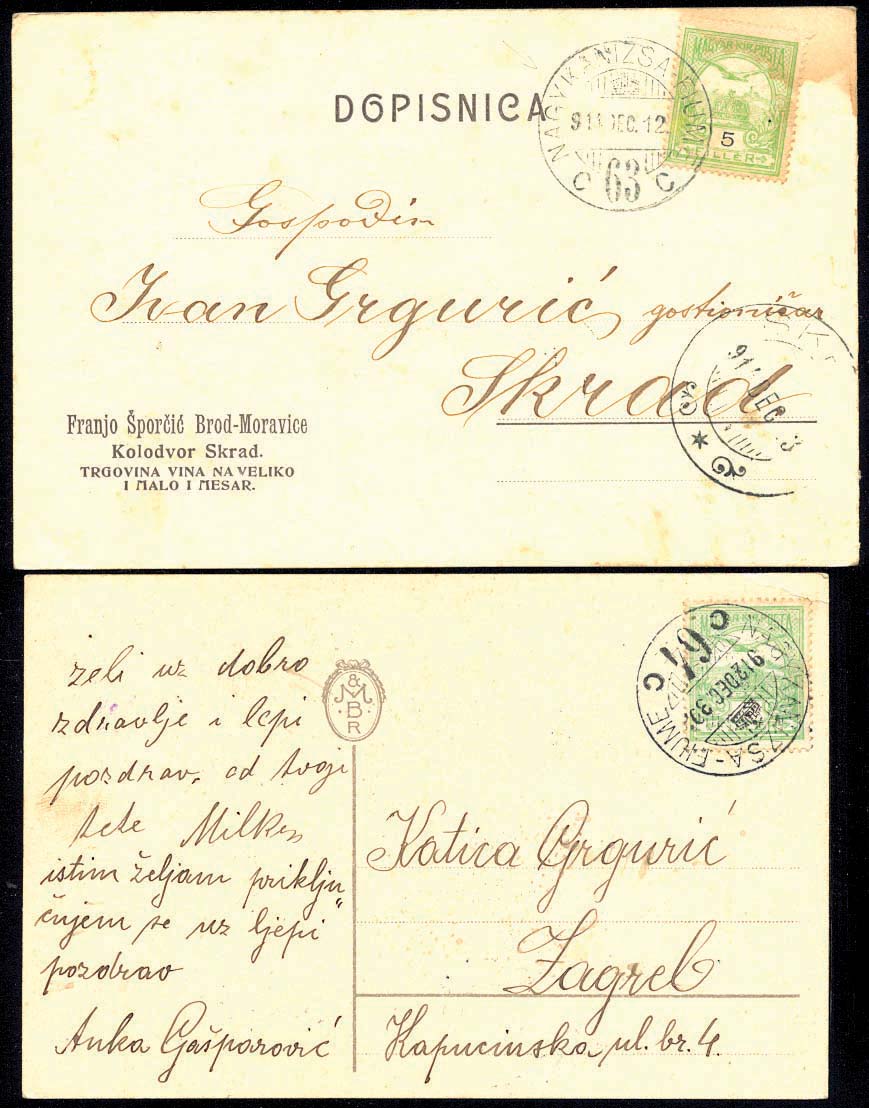 DOPISNICA
NAGYKANIZSA-FIUME
911 DEC. 12
C 63 C
MAGYAR KIR. POSTA
5
FILLER
Gospodin
Ivan Grgurić gostioničar
Skrad
SK
911 DEC 13
Franjo Šporčić Brod-Moravice
Kolodvor Skrad.
TRGOVINA VINA NA VELIKO
I MALO I MESAR.
NAGYKANIZSA-FIUME
912 DEC. 30
C 61 C
želi uz dobro
zdravlje i lepi
pozdrav, od tvoji
tete Milke
istim željam priklju„
čujem se uz ljepi"
pozdrav
Anka Gašparović
M & B R
Katica Grgurić
Zagreb
Kapucinska ul. br. 4.